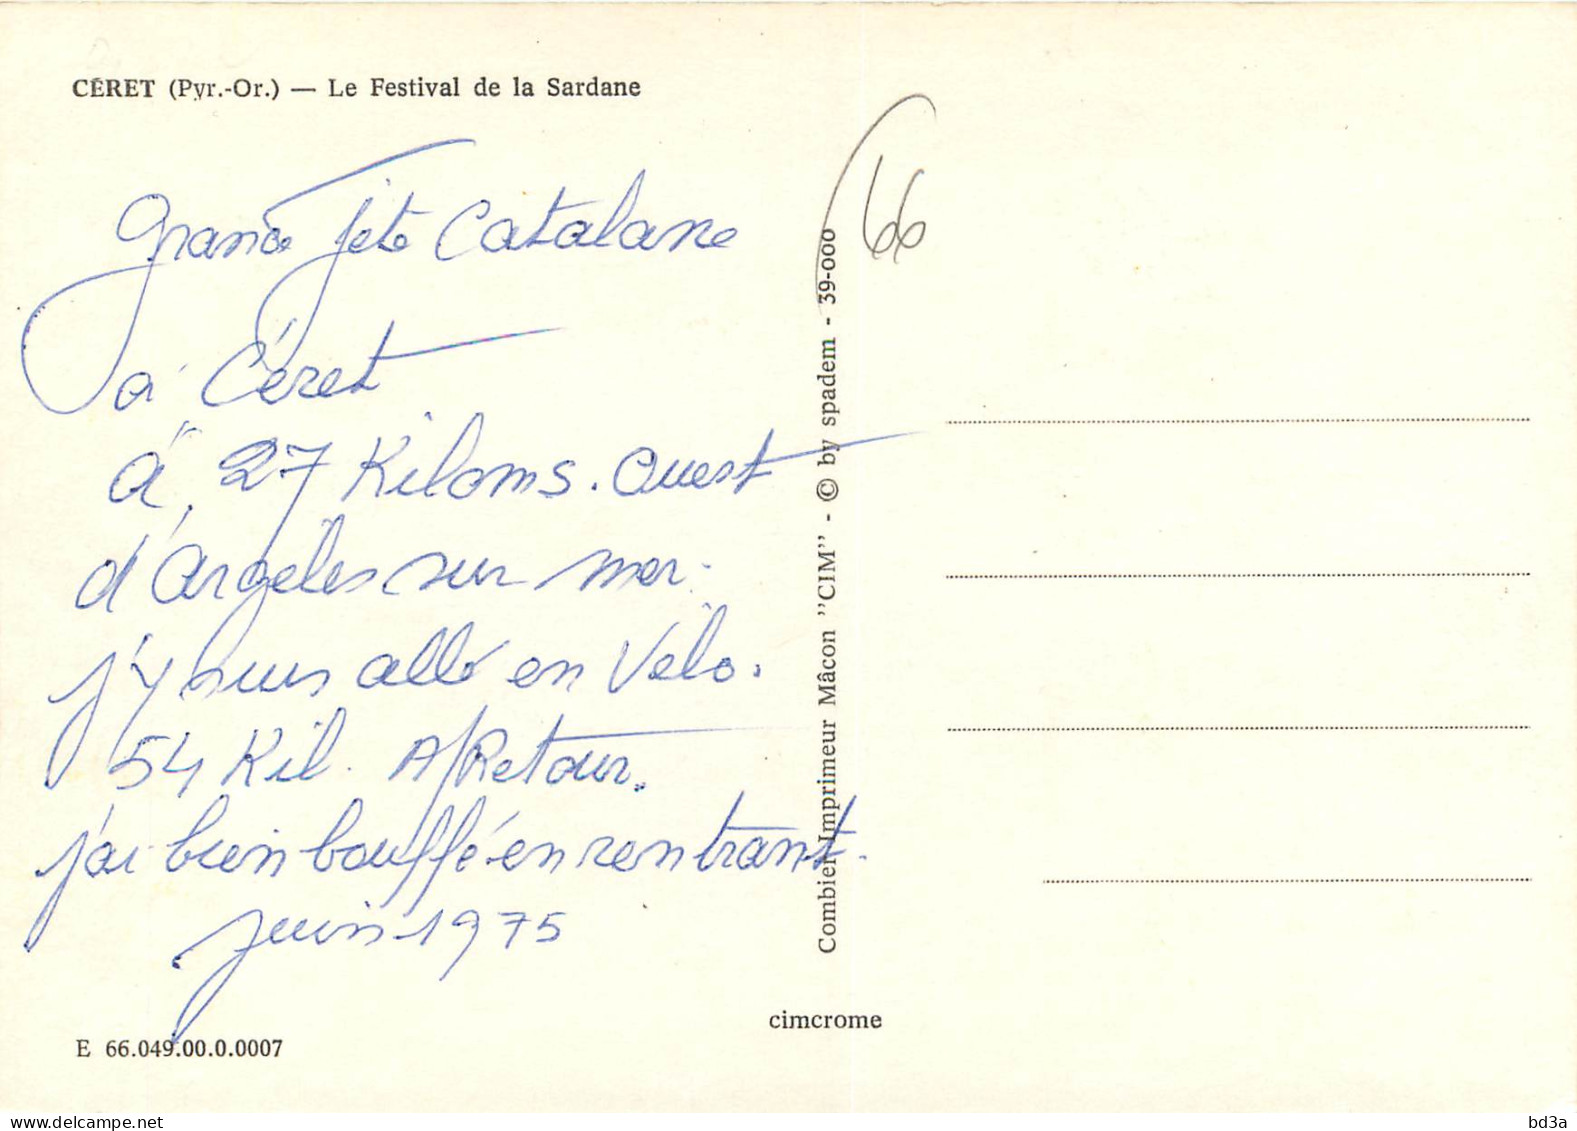 CÉRET (Pyr.-Or.) — Le Festival de la Sardane
66
Grande fête Catalane
à Céret
à 27 Kiloms. Ouest
d'Argeles sur mer.
j'y suis allé en Vélo.
54 Kil. A/Retour.
j'ai bien bouffé en rentrant.
juin 1975
Combier Imprimeur Mâcon "CIM" - © by spadem - 39-000
cimcrome
E 66.049.00.0.0007
www.delcampe.net
bd3a